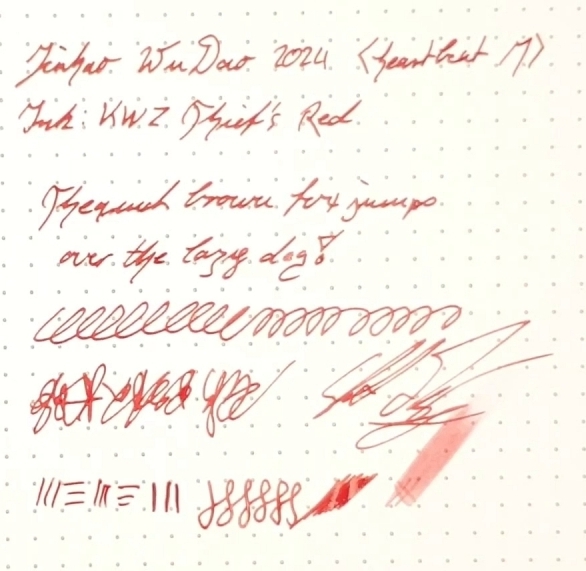 Jinhao WuDao 2024 <Heartbeat M>
Ink: KWZ Thief's Red
The quick brown fox jumps
over the lazy dog!